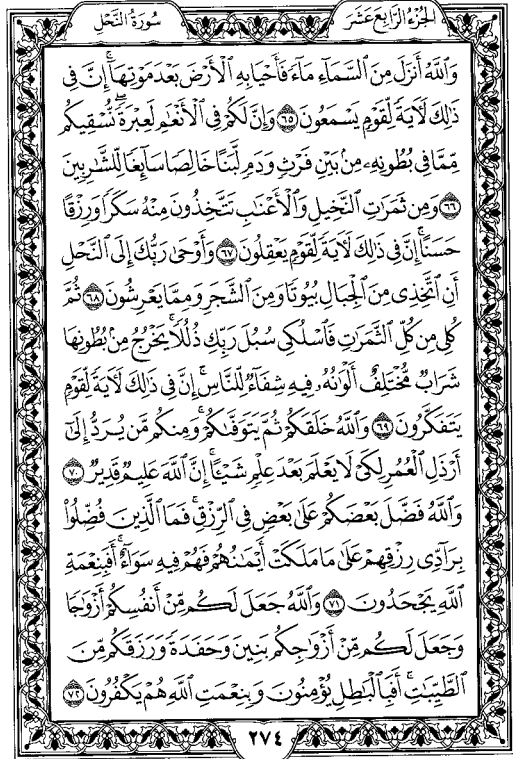 سُورَةُ النَّحْلِ
الجُزْءُ الرَّابِعَ عَشَرَ
وَٱللَّهُ أَنزَلَ مِنَ ٱلسَّمَآءِ مَآءً فَأَحْيَا بِهِ ٱلْأَرْضَ بَعْدَ مَوْتِهَآ ۚ إِنَّ فِى
ذَٰلِكَ لَـَٔايَةً لِّقَوْمٍ يَسْمَعُونَ ٦٥ وَإِنَّ لَكُمْ فِى ٱلْأَنْعَٰمِ لَعِبْرَةً ۖ نُّسْقِيكُم
مِّمَّا فِى بُطُونِهِۦ مِنۢ بَيْنِ فَرْثٍ وَدَمٍ لَّبَنًا خَالِصًا سَآئِغًا لِّلشَّٰرِبِينَ
٦٦ وَمِن ثَمَرَٰتِ ٱلنَّخِيلِ وَٱلْأَعْنَٰبِ تَتَّخِذُونَ مِنْهُ سَكَرًا وَرِزْقًا
حَسَنًا ۗ إِنَّ فِى ذَٰلِكَ لَـَٔايَةً لِّقَوْمٍ يَعْقِلُونَ ٦٧ وَأَوْحَىٰ رَبُّكَ إِلَى ٱلنَّحْلِ
أَنِ ٱتَّخِذِى مِنَ ٱلْجِبَالِ بُيُوتًا وَمِنَ ٱلشَّجَرِ وَمِمَّا يَعْرِشُونَ ٦٨ ثُمَّ
كُلِى مِن كُلِّ ٱلثَّمَرَٰتِ فَٱسْلُكِى سُبُلَ رَبِّكِ ذُلُلًا ۚ يَخْرُجُ مِنۢ بُطُونِهَا
شَرَابٌ مُّخْتَلِفٌ أَلْوَٰنُهُۥ فِيهِ شِفَآءٌ لِّلنَّاسِ ۗ إِنَّ فِى ذَٰلِكَ لَـَٔايَةً لِّقَوْمٍ
يَتَفَكَّرُونَ ٦٩ وَٱللَّهُ خَلَقَكُمْ ثُمَّ يَتَوَفَّىٰكُمْ ۚ وَمِنكُم مَّن يُرَدُّ إِلَىٰٓ
أَرْذَلِ ٱلْعُمُرِ لِكَىْ لَا يَعْلَمَ بَعْدَ عِلْمٍ شَيْـًٔا ۚ إِنَّ ٱللَّهَ عَلِيمٌ قَدِيرٌ ٧٠
وَٱللَّهُ فَضَّلَ بَعْضَكُمْ عَلَىٰ بَعْضٍ فِى ٱلرِّزْقِ ۚ فَمَا ٱلَّذِينَ فُضِّلُوا۟
بِرَآدِّى رِزْقِهِمْ عَلَىٰ مَا مَلَكَتْ أَيْمَٰنُهُمْ فَهُمْ فِيهِ سَوَآءٌ ۚ أَفَبِنِعْمَةِ
ٱللَّهِ يَجْحَدُونَ ٧١ وَٱللَّهُ جَعَلَ لَكُم مِّنْ أَنفُسِكُمْ أَزْوَٰجًا
وَجَعَلَ لَكُم مِّنْ أَزْوَٰجِكُم بَنِينَ وَحَفَدَةً وَرَزَقَكُم مِّنَ
ٱلطَّيِّبَٰتِ ۚ أَفَبِٱلْبَٰطِلِ يُؤْمِنُونَ وَبِنِعْمَتِ ٱللَّهِ هُمْ يَكْفُرُونَ ٧٢
٢٧٤